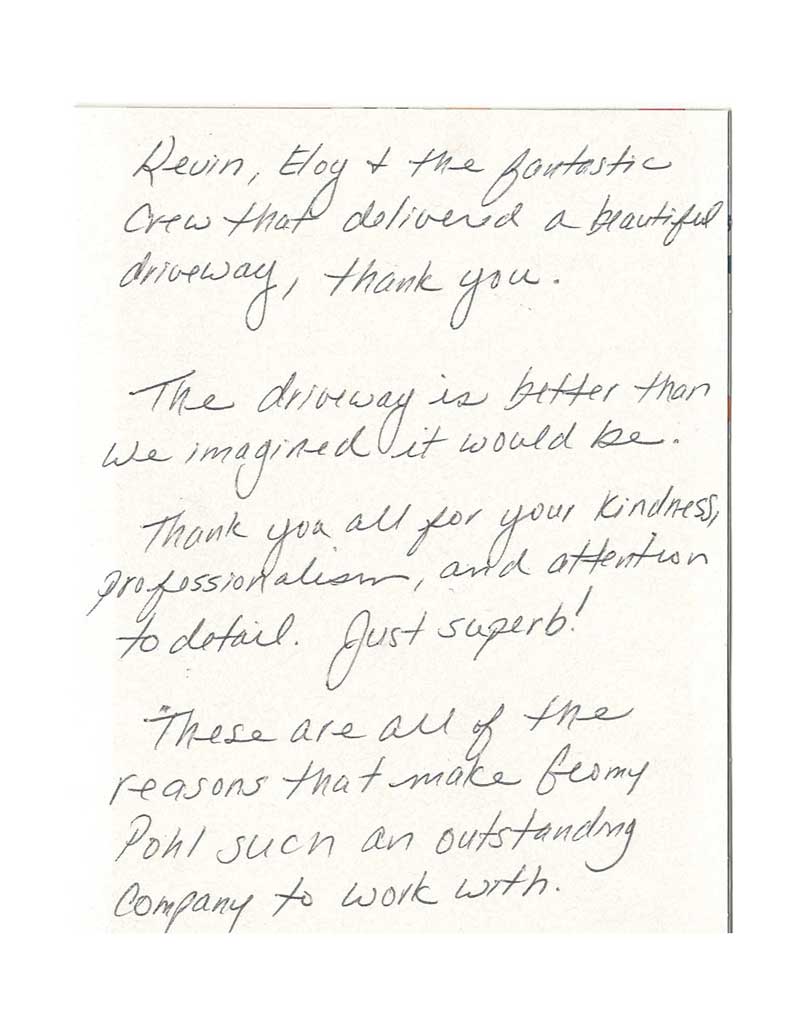 Kevin, Eloy & the fantastic
Crew that delivered a beautiful
driveway, thank you.
The driveway is better than
we imagined it would be.
Thank you all for your kindness,
professionalism, and attention
to detail. Just superb!
These are all of the
reasons that make
Pohl such an outstanding
Company to work with.